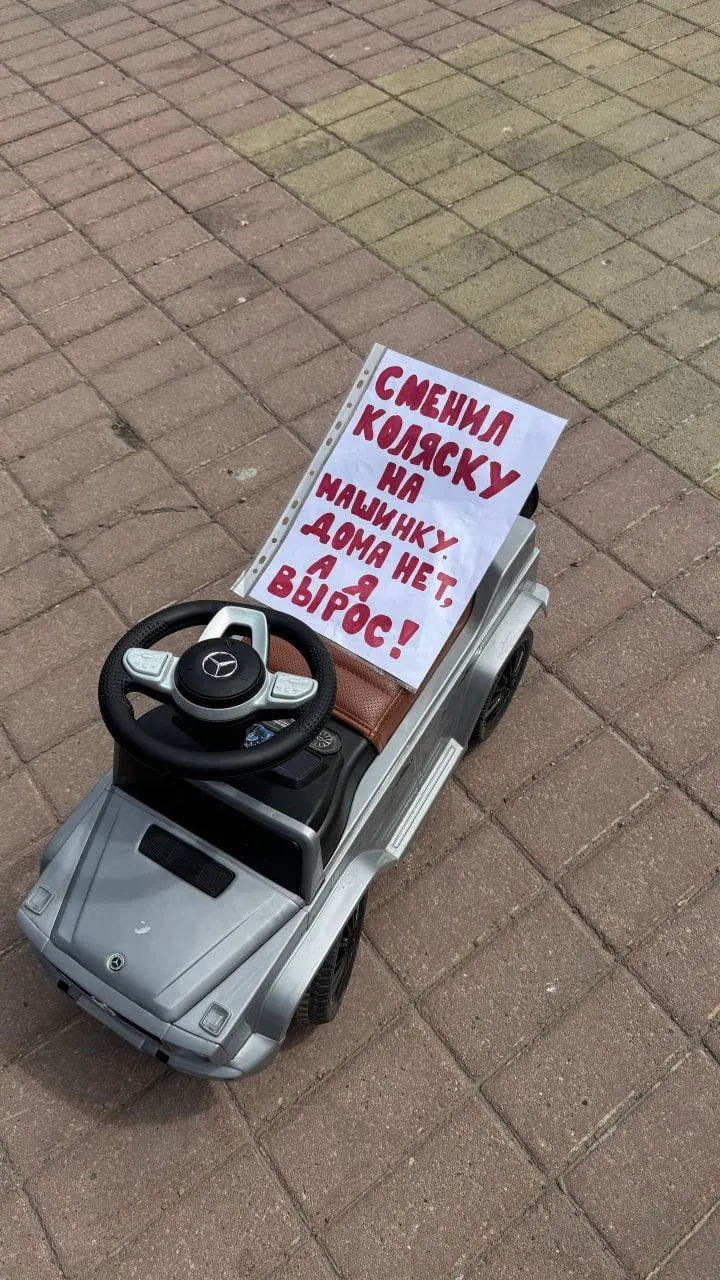 СМЕНИЛ
КОЛЯСКУ
НА
МАШИНКУ.
ДОМА НЕТ,
А Я
ВЫРОС!